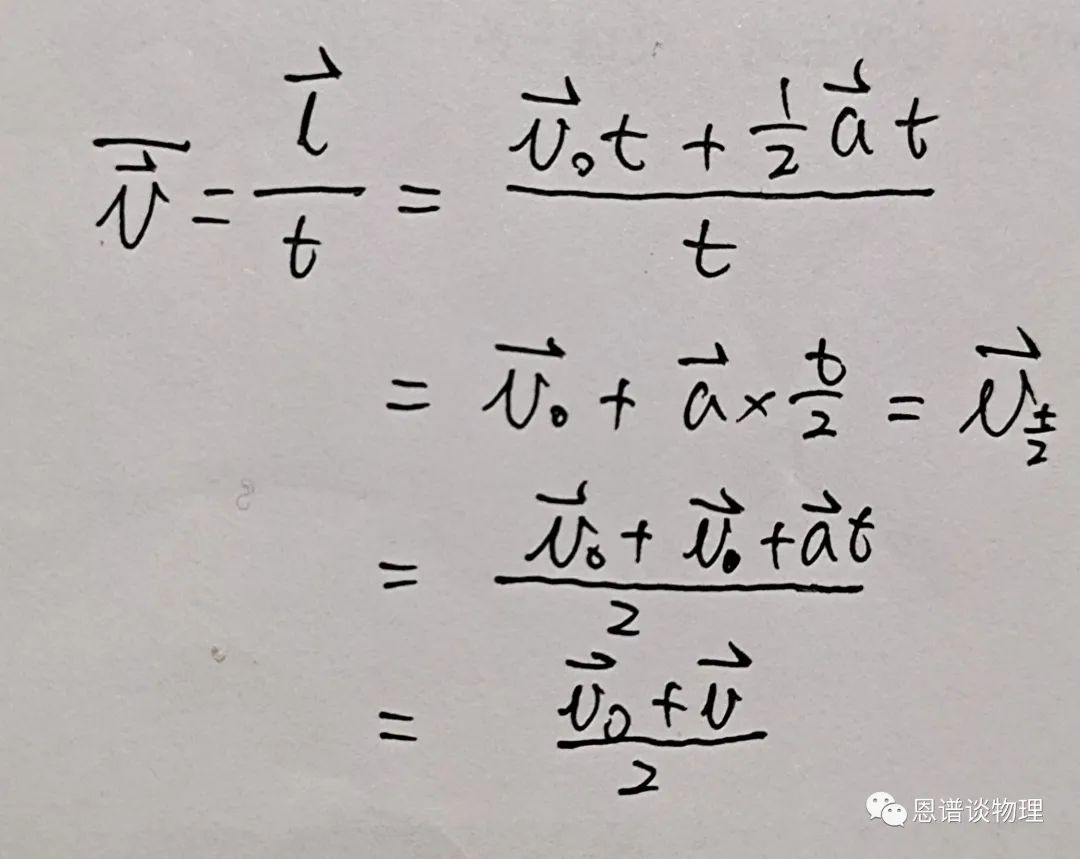 $\overline{\vec{v}} = \frac{\vec{l}}{t} = \frac{\vec{v}_0 t + \frac{1}{2} \vec{a} t}{t}$
$= \vec{v}_0 + \vec{a} \times \frac{t}{2} = \vec{v}_{\frac{t}{2}}$
$= \frac{\vec{v}_0 + \vec{v}_0 + \vec{a} t}{2}$
$= \frac{\vec{v}_0 + \vec{v}}{2}$
恩谱谈物理